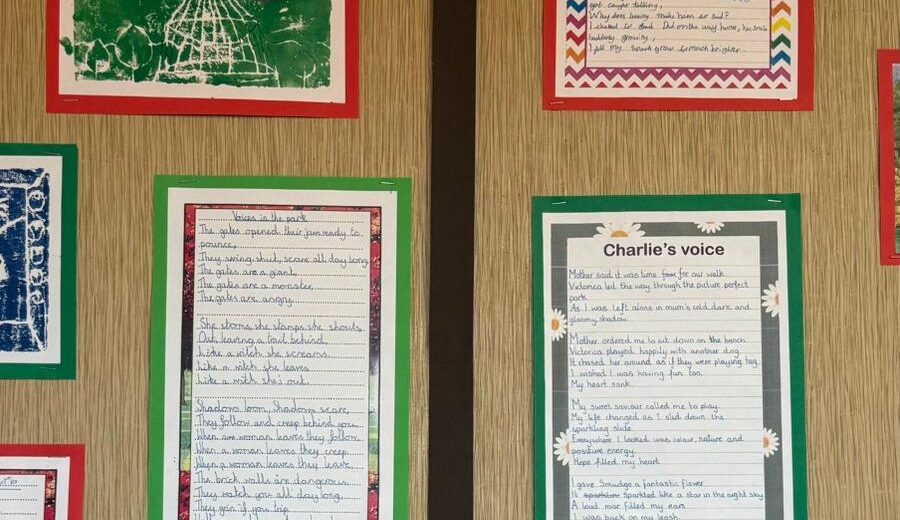 got caught talking,
Why does being make him so sad?
I chatted to
suddenly growing,
I felt my heart grow so much brighter.
Voices in the park
The gates opened, their jaw ready to
pounce,
They swing shut, scare all day long.
The gates are a giant.
The gates are a monster.
The gates are angry.
She storms, she stamps, she shouts.
Out, leaving a trail behind.
Like a witch she screams.
Like a witch she leaves.
Like a witch she's out.
Shadows loom, Shadows scare,
They follow and creep behind you.
When a woman leaves they follow.
When a woman leaves they creep.
When a woman leaves they leave.
The brick walls are dangerous.
They watch you all day long.
They grin if you trip
Charlie's voice
Mother said it was time for our walk.
Victoria led the way through the picture perfect
park.
As I was left alone in mum's cold, dark and
gloomy shadow.
Mother ordered me to sit down on the bench.
Victoria played happily with another dog.
It chased her around as if they were playing tag.
I wished I was having fun too.
My heart sank.
My sweet saviour called me to play.
My life changed as I slid down the
sparkling slide.
Everywhere I looked was colour, nature and
positive energy.
Hope filled my heart.
I gave Smudge a fantastic flower.
It sparkled like a star in the night sky.
A loud roar filled my ears.
I was back on my leash.